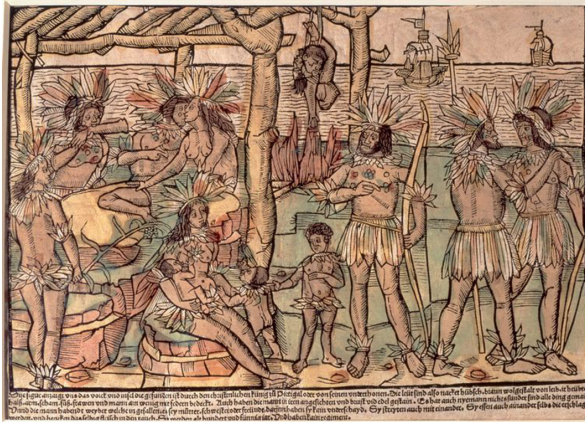 Dise figur anzaigt vns das volck vnd insel die gefunden ist durch den christenlichen künig zů Portigal oder von seinen vnderthonen. Die leüt sind also nacket hübsch. braun wolgestalt von leib. ir heübter
halß. arm. scham. füß. frawen vnd mann ain wenig mit federn bedeckt. Auch haben die mann in iren angesichten vnd brust vil edel gestain. Es hat auch nyemann nichts sunder sind alle ding gemain
Vnnd die mann habendt weyber welche in gefallen. es sey mütter, schwester oder freündt. darinn haben sy kain vnderschayd. Sy streyten auch mit einander. Sy essen auch ainander selbs die erschlagen
werden, vnd hencken das selbig fleisch in den rauch. Sy werden alt hundert vnd fünffzig iar. Vnd haben kain regiment.